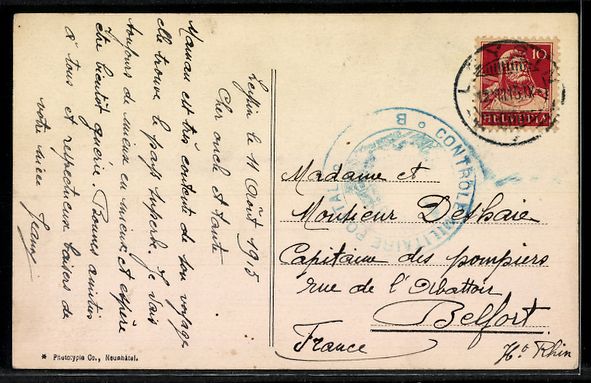 Leysin le 11 Août 1915
Cher oncle et tante
Maman est très contente de son voyage
elle trouve le pays superbe. Je vais
toujours de mieux en mieux et espère
être bientôt guérie. Bonnes amitiés
à tous et respectueux baisers de
votre nièce Jeanne
* Phototypie Co., Neuchâtel.
10
HELVETIA
CONTRÔLE MILITAIRE POSTAL
B
Madame et
Monsieur Deshaie
Capitaine des pompiers
rue de l'Abattoir
Belfort
Ht Rhin
France